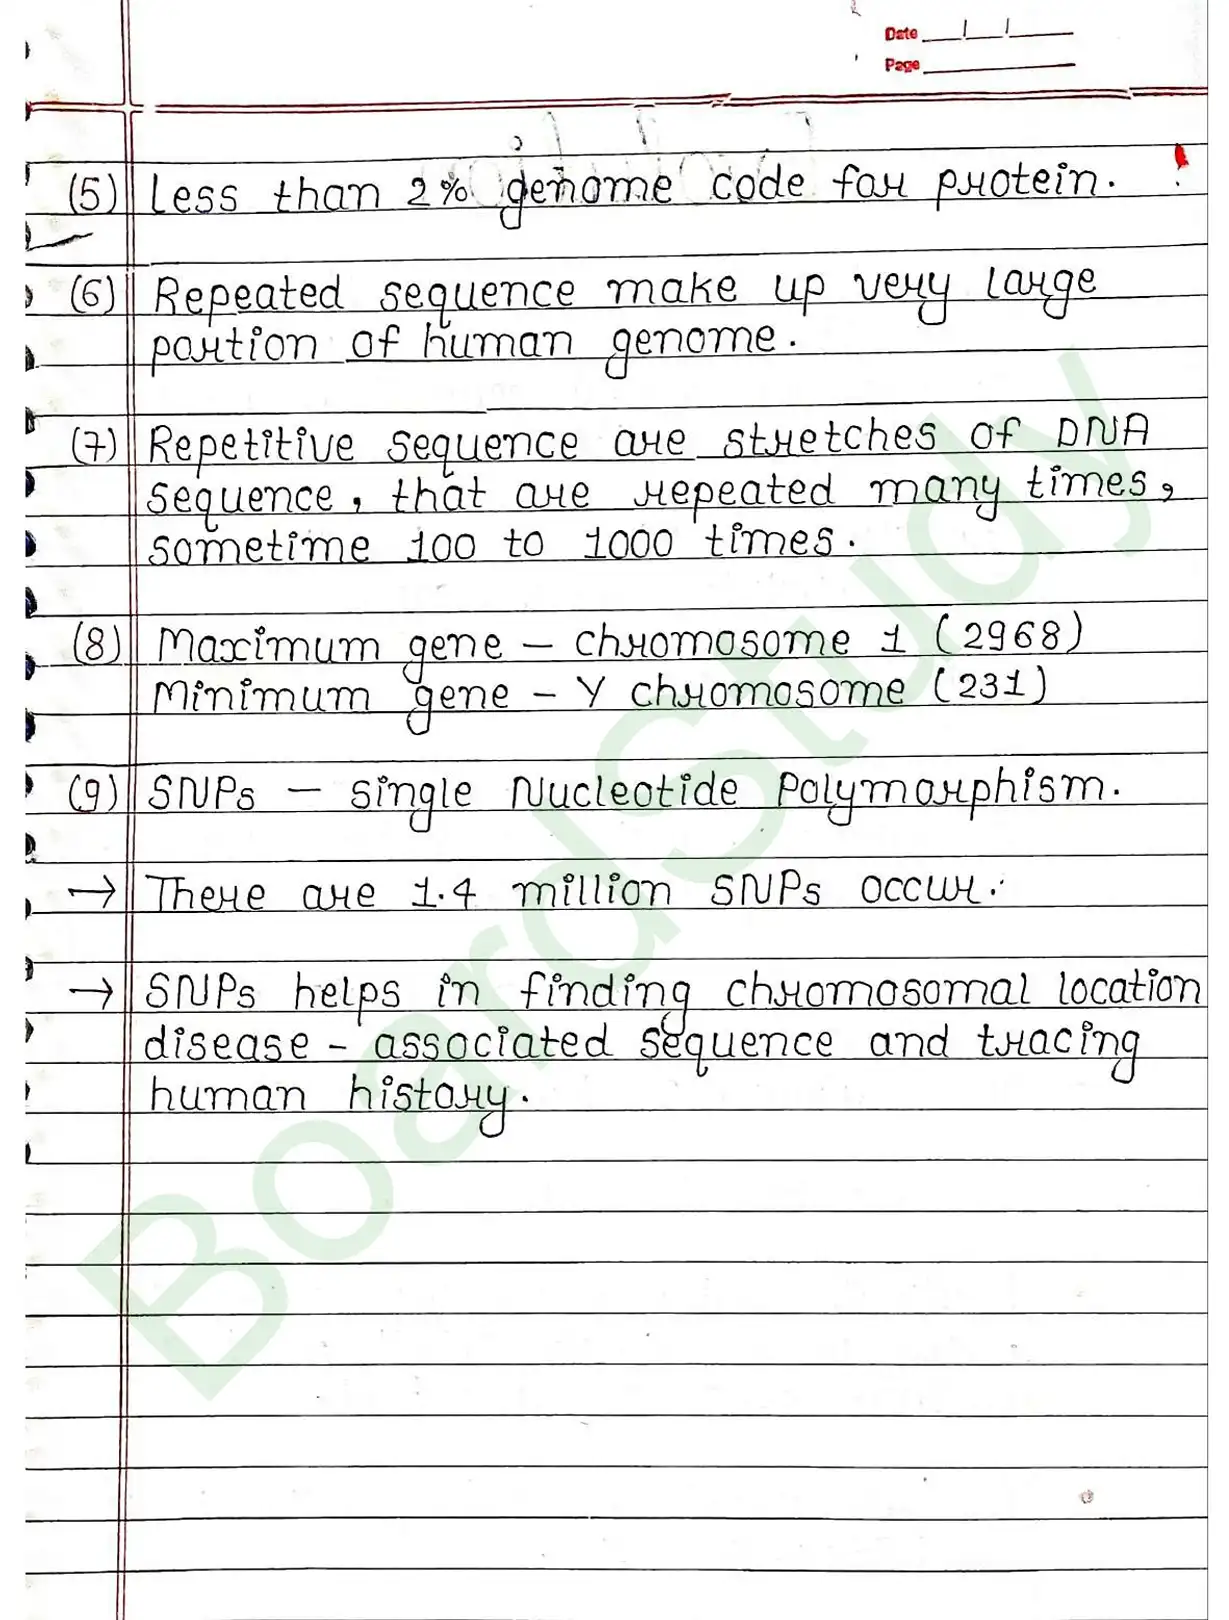 Date
Page
(5) Less than 2% genome code for protein.
(6) Repeated sequence make up very large
portion of human genome.
(7) Repetitive sequence are stretches of DNA
sequence, that are repeated many times,
sometime 100 to 1000 times.
(8) Maximum gene – chromosome 1 (2968)
Minimum gene – Y chromosome (231)
(9) SNPs – single Nucleotide Polymorphism.
→ There are 1.4 million SNPs occur.
→ SNPs helps in finding chromosomal location
disease - associated sequence and tracing
human history.
BoardStudy